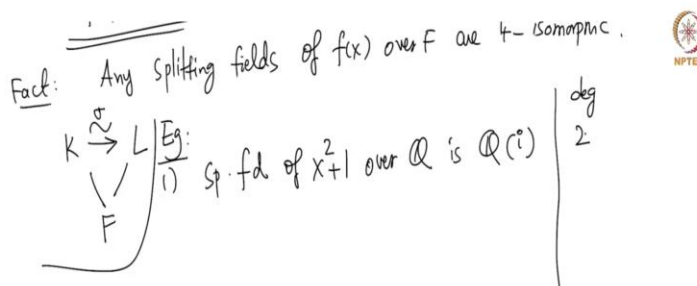 Fact: Any splitting fields of f(x) over F are 4-isomorphic.
NPTE
K σ ⥲ L
F
Eg:
1) Sp. fd of x²+1 over Q is Q(i)
deg
2